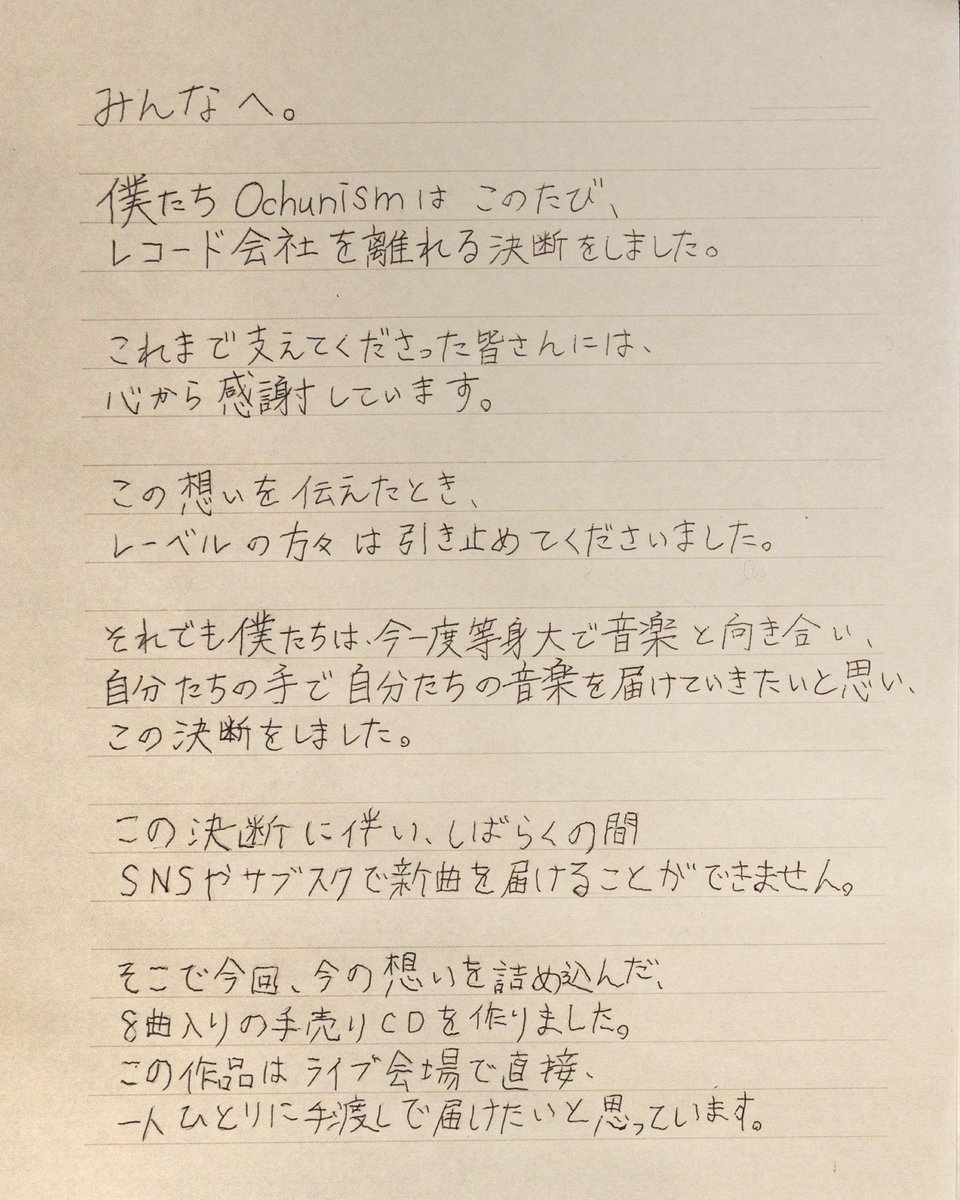 みんなへ。
僕たち Ochunismは このたび、
レコード会社を離れる決断をしました。
これまで支えてくださった皆さんには、
心から感謝しています。
この想いを伝えたとき、
レーベルの方々は引き止めてくださいました。
それでも僕たちは、今一度等身大で音楽と向き合い、
自分たちの手で自分たちの音楽を届けていきたいと思い、
この決断をしました。
この決断に伴い、しばらくの間
SNSやサブスクで新曲を届けることができません。
そこで今回、今の想いを詰め込んだ、
8曲入りの手売りCDを作りました。
この作品はライブ会場で直接、
一人ひとりに手渡しで届けたいと思っています。